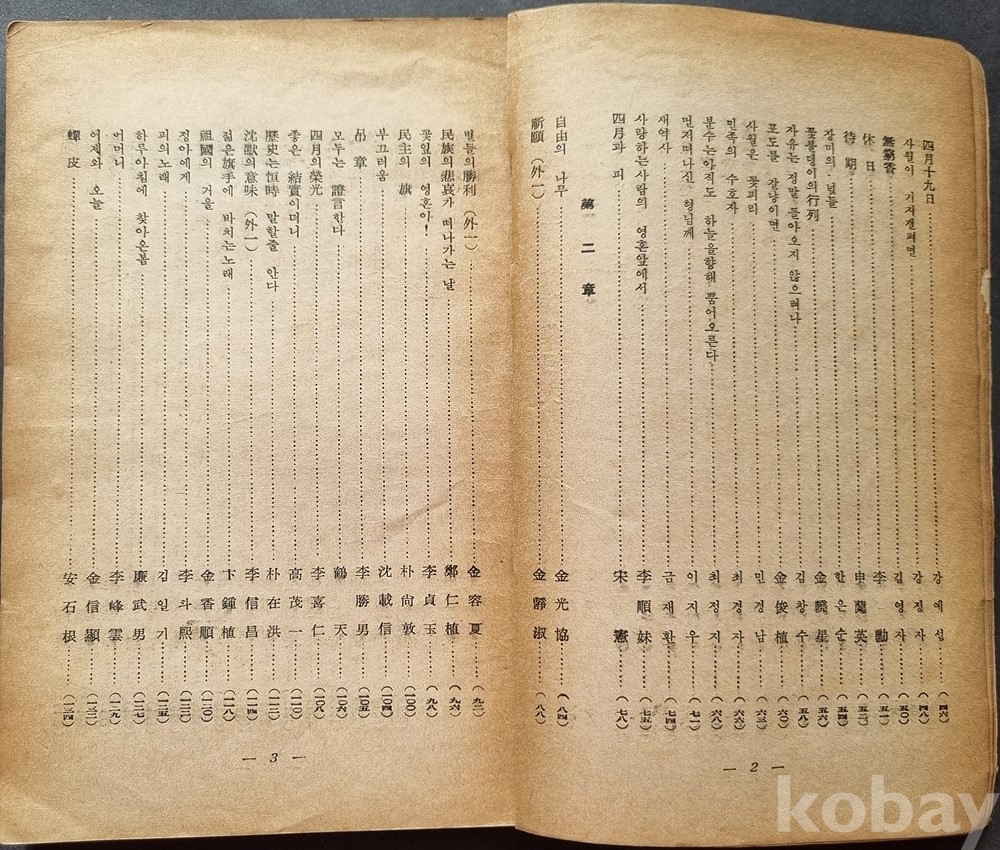 四月十九日 강예섭 (四六)
사월이 기지갤펴면 강정자 (四八)
無窮香 길영자 (五〇)
休日 李勳 (五一)
待期 申蘭英 (五二)
장미의 넋들 한은순 (五四)
꽃봉덩이의 行列 金騰星 (五六)
자유는 정말 돌아오지 않으려나 김창수 (五八)
포도를 갈냥이면 金俊植 (六〇)
사월은 꽃피리 민경남 (六三)
민족의 수호자 최경자 (六六)
분수는아직도 하늘을향해 뿜어오른다 최정지 (六八)
먼저떠나신 형님께 이지우 (七一)
새역사 금재환 (七四)
사랑하는사람의 영혼앞에서 李順妹 (七五)
四月과 피 宋憲 (七八)
第二章
自由의 나무 金光協 (八四)
祈願 (外一) 金靜淑 (八八)
— 2 —
별들의 勝利 (外一) 金容夏 (九二)
民族의 悲哀가 떠나가는 날 鄭仁植 (九六)
꽃잎의 영혼아! 李貞玉 (九八)
民主의 旗 朴尙敦 (一〇〇)
부끄러움 沈載信 (一〇四)
吊章 李勝男 (一〇五)
모두는 證言한다 鶴天 (一〇六)
四月의 榮光 李喜仁 (一〇八)
좋은 結實이더니 高茂一 (一一〇)
歷史는 恒時 말할줄 안다 朴在洪 (一一二)
沈獸의 意味 (外一) 李信昌 (一一四)
젊은 旗手에 바치는노래 卞鍾植 (一一八)
祖國의 거울 金香順 (一二〇)
정아에게 李斗熙 (一二三)
피의노래 김일기 (一二五)
하루아침에 찾아온봄 廉武男 (一二七)
어머니 李峰雲 (一二九)
어제와 오늘 金信顯 (一三二)
蟬皮 安石根 (一三四)
— 3 —
kobay